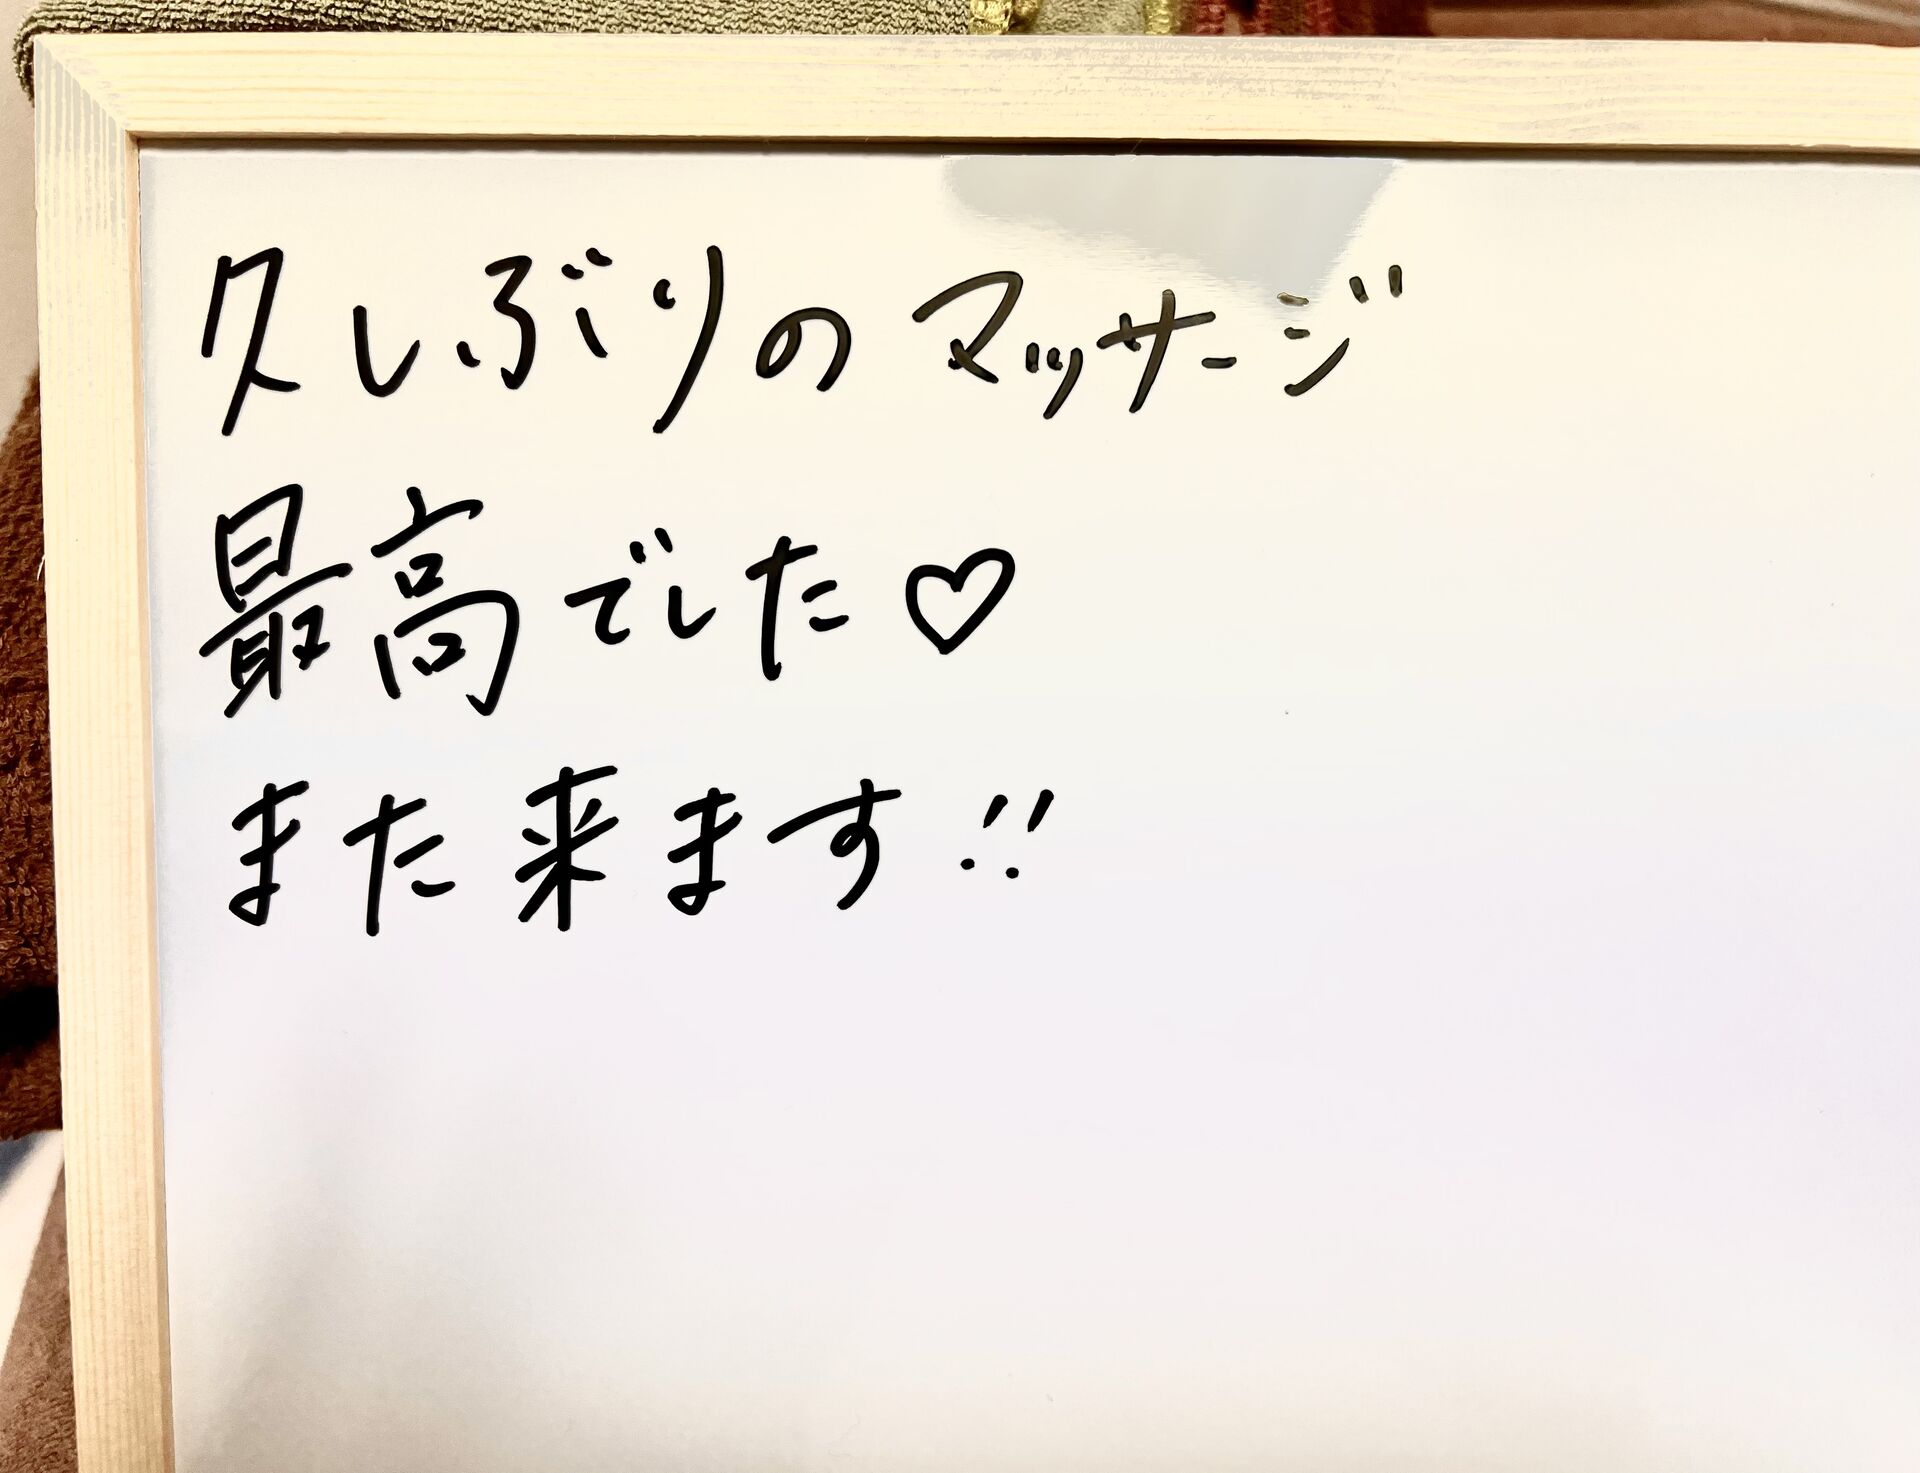 久しぶりのマッサージ
最高でした♡
また来ます!!